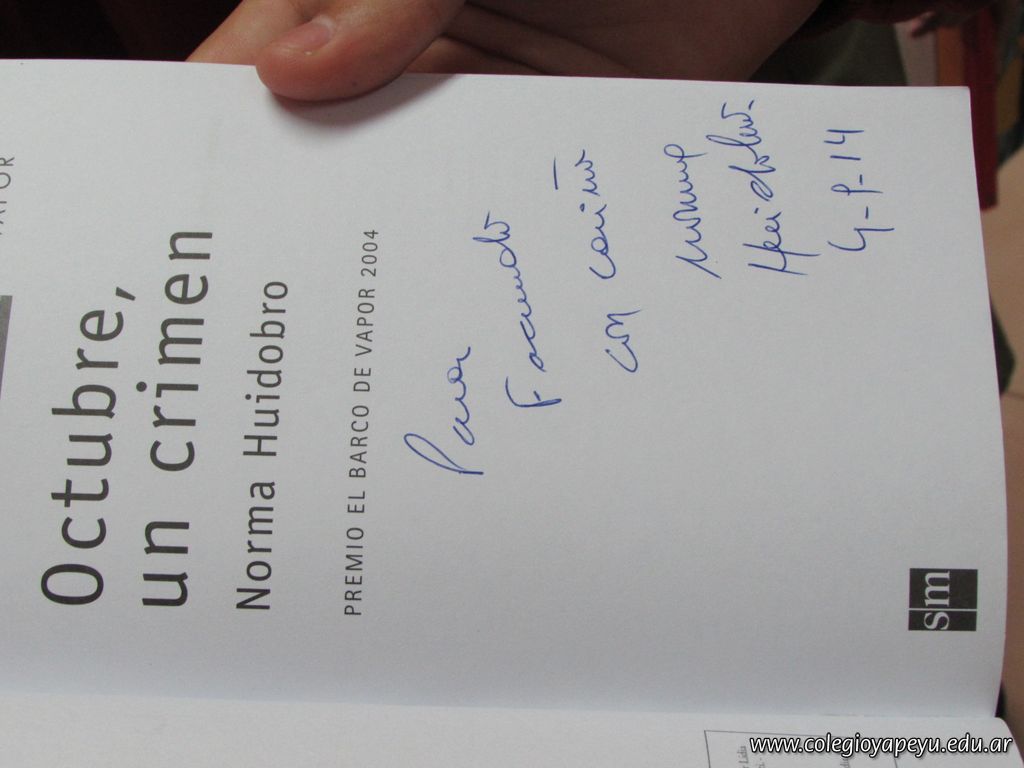 Octubre,
un crimen
Norma Huidobro
PREMIO EL BARCO DE VAPOR 2004
Para
Facundo
con cariño
Norma
Huidobro.
sm
www.colegioyapeyu.edu.ar